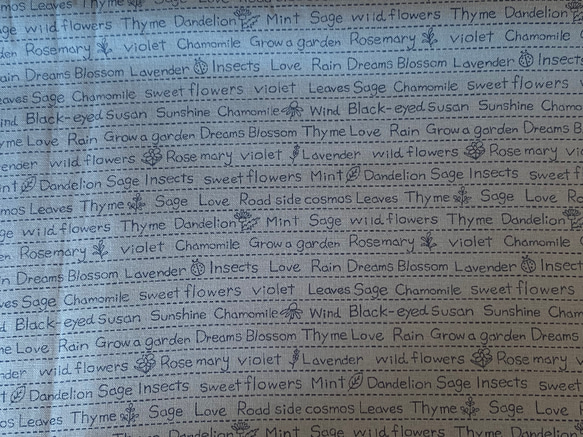 mos Leaves Thyme Sage Love Road side cosmos
wild flowers Thyme Dandelion Mint Sage wild flowers Thyme Dandelion
Rosemary violet Chamomile Grow a garden Rosemary violet Chamomile
Dreams Blossom Lavender Insects Love Rain Dreams Blossom Lavender Insects
Sage Chamomile sweet flowers violet Leaves Sage Chamomile sweet flowers
Black-eyed Susan Sunshine Chamomile Wind Black-eyed Susan Sunshine
Love Rain Grow a garden Dreams Blossom Thyme Love Rain Grow a garden Dreams
wild flowers Rosemary violet Lavender wild flowers Rosemary
Dandelion Sage Insects sweet flowers Mint Dandelion Sage Insects sweet
Leaves Thyme Sage Love Road side cosmos Leaves Thyme Sage Love
wild flowers Thyme Dandelion Mint Sage wild flowers Thyme Dandelion
Rosemary violet Chamomile Grow a garden Rosemary violet Chamomile
Dreams Blossom Lavender Insects Love Rain Dreams Blossom Lavender Insect
Sage Chamomile sweet flowers violet Leaves Sage Chamomile sweet flowers
Black-eyed Susan Sunshine Chamomile Wind Black-eyed Susan Sunshine
Love Rain Grow a garden Dreams Blossom Thyme Love Rain Grow a garden Dreams
wild flowers Rosemary violet Lavender wild flowers Rosemary
Dandelion Sage Insects sweet flowers Mint Dandelion Sage Insects sweet
Leaves Thyme Sage Love Road side cosmos Leaves Thyme Sage Love
Thyme Dandelion Mint Sage wild flowers Thyme Dandelion